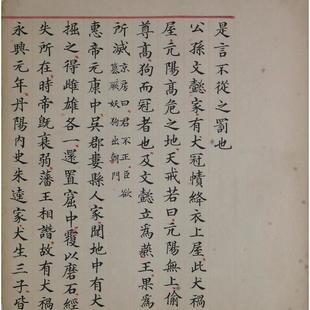 是言不從之罰也
公孫文懿家有犬冠幘絳衣上屋此犬禍
屋亢陽高危之地天戒若曰亢陽無上偷
尊高狗而冠者也及文懿立為燕王果為
所滅京房曰君不正臣欲
篡厥妖狗出朝門
惠帝元康中吳郡婁縣人家聞地中有犬
掘之得雌雄各一還置窟中覆以磨石經
失所在時帝既衰弱藩王相譖故有犬禍
永興元年丹陽內史朱逵家犬生三子皆